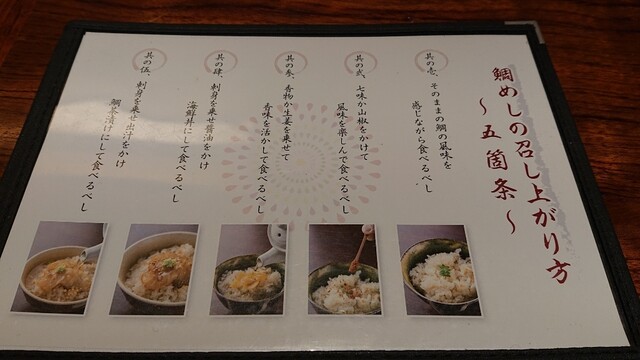 鯛めしの召し上がり方
～五箇条～
其の壱、そのままの鯛の風味を
感じながら食べるべし
其の弐、七味か山椒をかけて
風味を楽しんで食べるべし
其の参、香物か生姜を乗せて
香味を活かして食べるべし
其の肆、刺身を乗せ醤油をかけ
海鮮丼にして食べるべし
其の伍、刺身を乗せ出汁をかけ
鯛茶漬けにして食べるべし